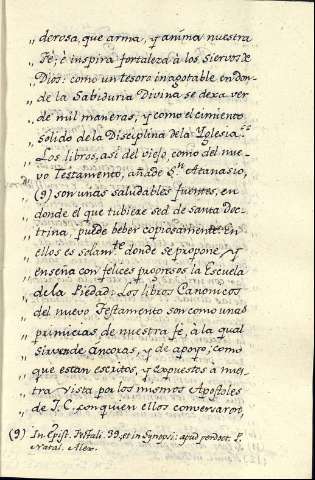 „ derosa, que arma, y anima nuestra
„ Fe; è inspira fortaleza à los siervos de
„ Dios: como un tesoro inagotable en don-
„ de la Sabiduria Divina se dexa ver
„ de mil maneras; y como el cimiento
„ sòlido de la Disciplina de la Yglesia.
„ Los libros, asi del viejo, como del nue-
„ vo Testamento, añade S.n Atanasio,
„ (9) son unas saludables fuentes, en
„ donde el que tubiese sed de santa Doc-
„ trina puede beber copiosamente. En
„ ellos es solam.te donde se propone, y
„ enseña con felices progresos la Escuela
„ de la Piedad: Los libros Canonicos
„ del nuevo Testamento son como unas
„ primicias de nuestra fe, à la qual
„ sirven de àncoras, y de apoyo; como
„ que estan escritos, y expuestos a nues-
„ tra vista por los mismos Apostoles
„ de J. C. con quien ellos conversaron,
(9) In Epist. Festali. 39. et in Synopsi: apud P.
Natal. Alex.